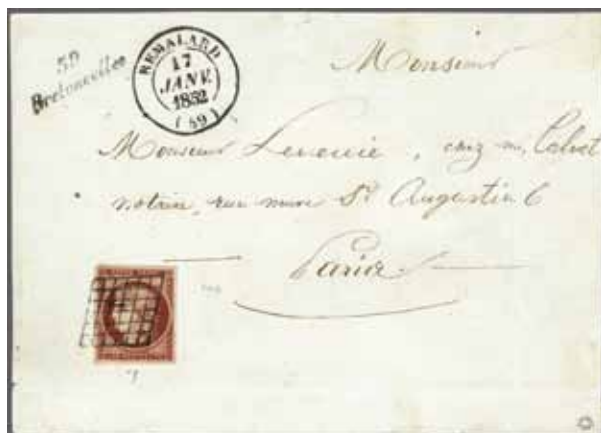 59
Bretoncelles
REMALARD
17
JANV.
1852
(59)
Monsieur
Monsieur chez m.
notaire, rue St Augustin 6
Paris